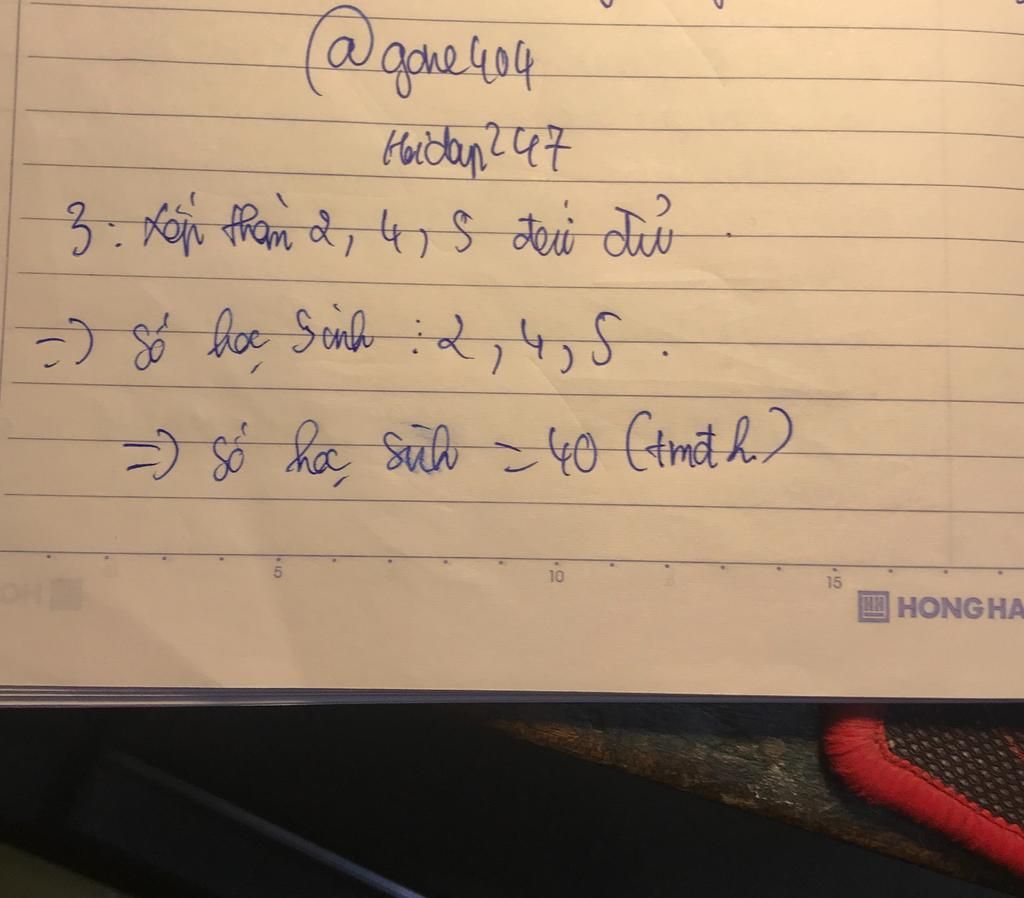 @gone404
Hoidap247
3: xếp thàn 2, 4, 5 đều đủ.
=) số học sinh : 2, 4, 5.
=) số học sinh = 40 (tmđk)
5 10 15
HONG HA